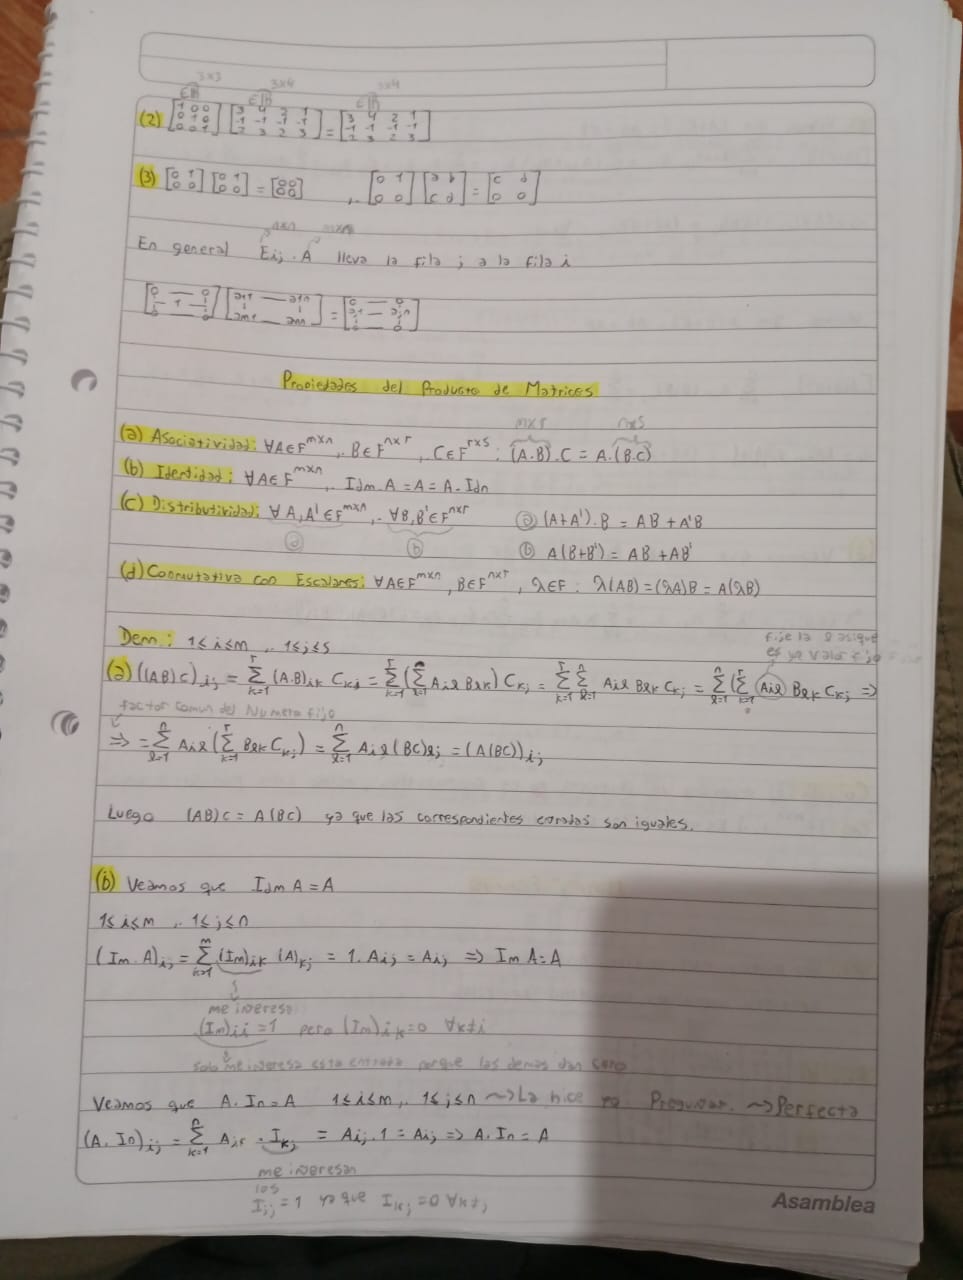 3x3 3x4 3x4
∈ℝ ∈ℝ ∈ℝ
(2) [1 0 0; 0 1 0; 0 0 1] [3 4 2 1; -1 -1 -1 -1; 2 3 2 3] = [3 4 2 1; -1 -1 -1 -1; 2 3 2 3]
(3) [0 1; 0 0] [0 1; 0 0] = [0 0; 0 0] ,. [0 1; 0 0] [a b; c d] = [c d; 0 0]
En general Eij . A lleva la fila j a la fila i
Propiedades del Producto de Matrices
mxr nxs
(a) Asociatividad: ∀A∈F^mxn ,. B∈F^nxr , C∈F^rxs : (A.B).C = A.(B.C)
(b) Identidad: ∀A∈F^mxn ,. Idm A = A = A. Idn
(c) Distributividad: ∀A,A'∈F^mxn ,. ∀B,B'∈F^nxr ⓐ (A+A').B = AB + A'B
ⓐ ⓑ ⓑ A(B+B') = AB + AB'
(d) Conmutativa con Escalares: ∀A∈F^mxn , B∈F^nxr , λ∈F : λ(AB) = (λA)B = A(λB)
Dem: 1≤i≤m ,. 1≤j≤s
fije la l asi que
es ya valor fijo
(a) ((AB)C)ij = Σ_{k=1}^r (A.B)ik Ckj = Σ_{k=1}^r (Σ_{l=1}^n Ail Blk) Ckj = Σ_{k=1}^r Σ_{l=1}^n Ail Blk Ckj = Σ_{l=1}^n (Σ_{k=1}^r Ail Blk Ckj ⇒
factor comun del Numero fijo
⇒ = Σ_{l=1}^n Ail (Σ_{k=1}^r Blk Ckj) = Σ_{l=1}^n Ail (BC)lj = (A(BC))ij
Luego (AB)C = A(BC) ya que las correspondientes entradas son iguales.
(b) Veamos que Idm A = A
1≤i≤m ,. 1≤j≤n
(Im. A)ij = Σ_{k=1}^m (Im)ik (A)kj = 1. Aij = Aij ⇒ Im A = A
me interesa
(Im)ii = 1 pero (Im)ik = 0 ∀k≠i
solo me interesa esta entrada porque las demas dan cero
Veamos que A. In = A 1≤i≤m ,. 1≤j≤n ⇝ La hice yo Preguntar. ⇝ Perfecta
(A. In)ij = Σ_{k=1}^n Aik . Ikj = Aij . 1 = Aij ⇒ A. In = A
me interesan
los
Ijj = 1 ya que Ikj = 0 ∀k≠j
Asamblea